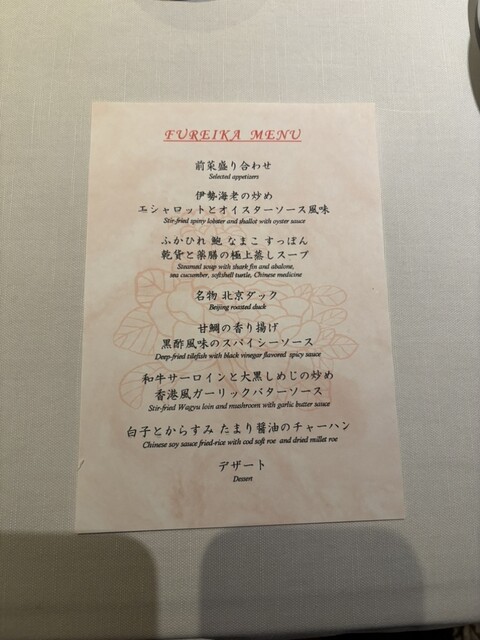 FUREIKA MENU
前菜盛り合わせ
Selected appetizers
伊勢海老の炒め
エシャロットとオイスターソース風味
Stir-fried spiny lobster and shallot with oyster sauce
ふかひれ 鮑 なまこ すっぽん
乾貨と薬膳の極上蒸しスープ
Steamed soup with shark fin and abalone,
sea cucumber, softshell turtle, Chinese medicine
名物 北京ダック
Beijing roasted duck
甘鯛の香り揚げ
黒酢風味のスパイシーソース
Deep-fried tilefish with black vinegar flavored spicy sauce
和牛サーロインと大黒しめじの炒め
香港風ガーリックバターソース
Stir-fried Wagyu loin and mushroom with garlic butter sauce
白子とからすみ たまり醤油のチャーハン
Chinese soy sauce fried-rice with cod soft roe and dried millet roe
デザート
Dessert